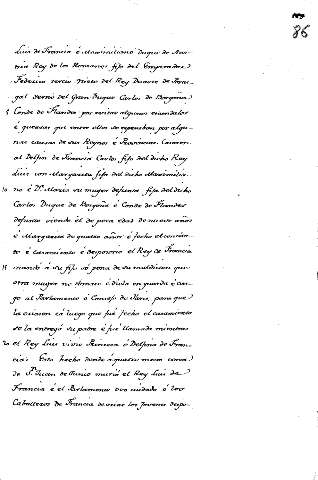 86
Luis de Francia é Maximiliano Duque de Aus-
Rey de los Romanos fijo del Emperador
Federico tercio nieto del Rey Duarte de Portu-
gal yerno del Gran Duque Carlos de Borgoña
5 Conde de Flandes por evitar algunos escandalos
é guerras que entre ellos se esperaban por algu-
nas causas de sus Reynos é
al Delfin de Francia Carlos fijo del dicho Rey
Luis con Margareta fija del dicho Maximilia-
10 no é Dª Maria su muger defunta fija del dicho
Carlos Duque de Borgoña é Conde de Flandes
defunto siendo él de edad de nueve años
é Margareta de quatro años é fecho el concier-
to é casamiento é desposorio el Rey de Francia
15 mandó á su fijo só pena de su maldicion que
otra muger no tomase é dióla en guarda é car-
go al Parlamento é Consejo de Paris, para que
la criasen ca luego que fué fecho el casamiento
se la entregó su padre é fué llamada mientras
20 el Rey Luis vivió Princesa é Delfina de Fran-
cia. Esto fecho dende á quatro meses cerca
de S. Juan de Junio murió el Rey Luis de
Francia é el Parlamento tuvo cuidado é los
Caballeros de Francia de criar los Jovenes despo-